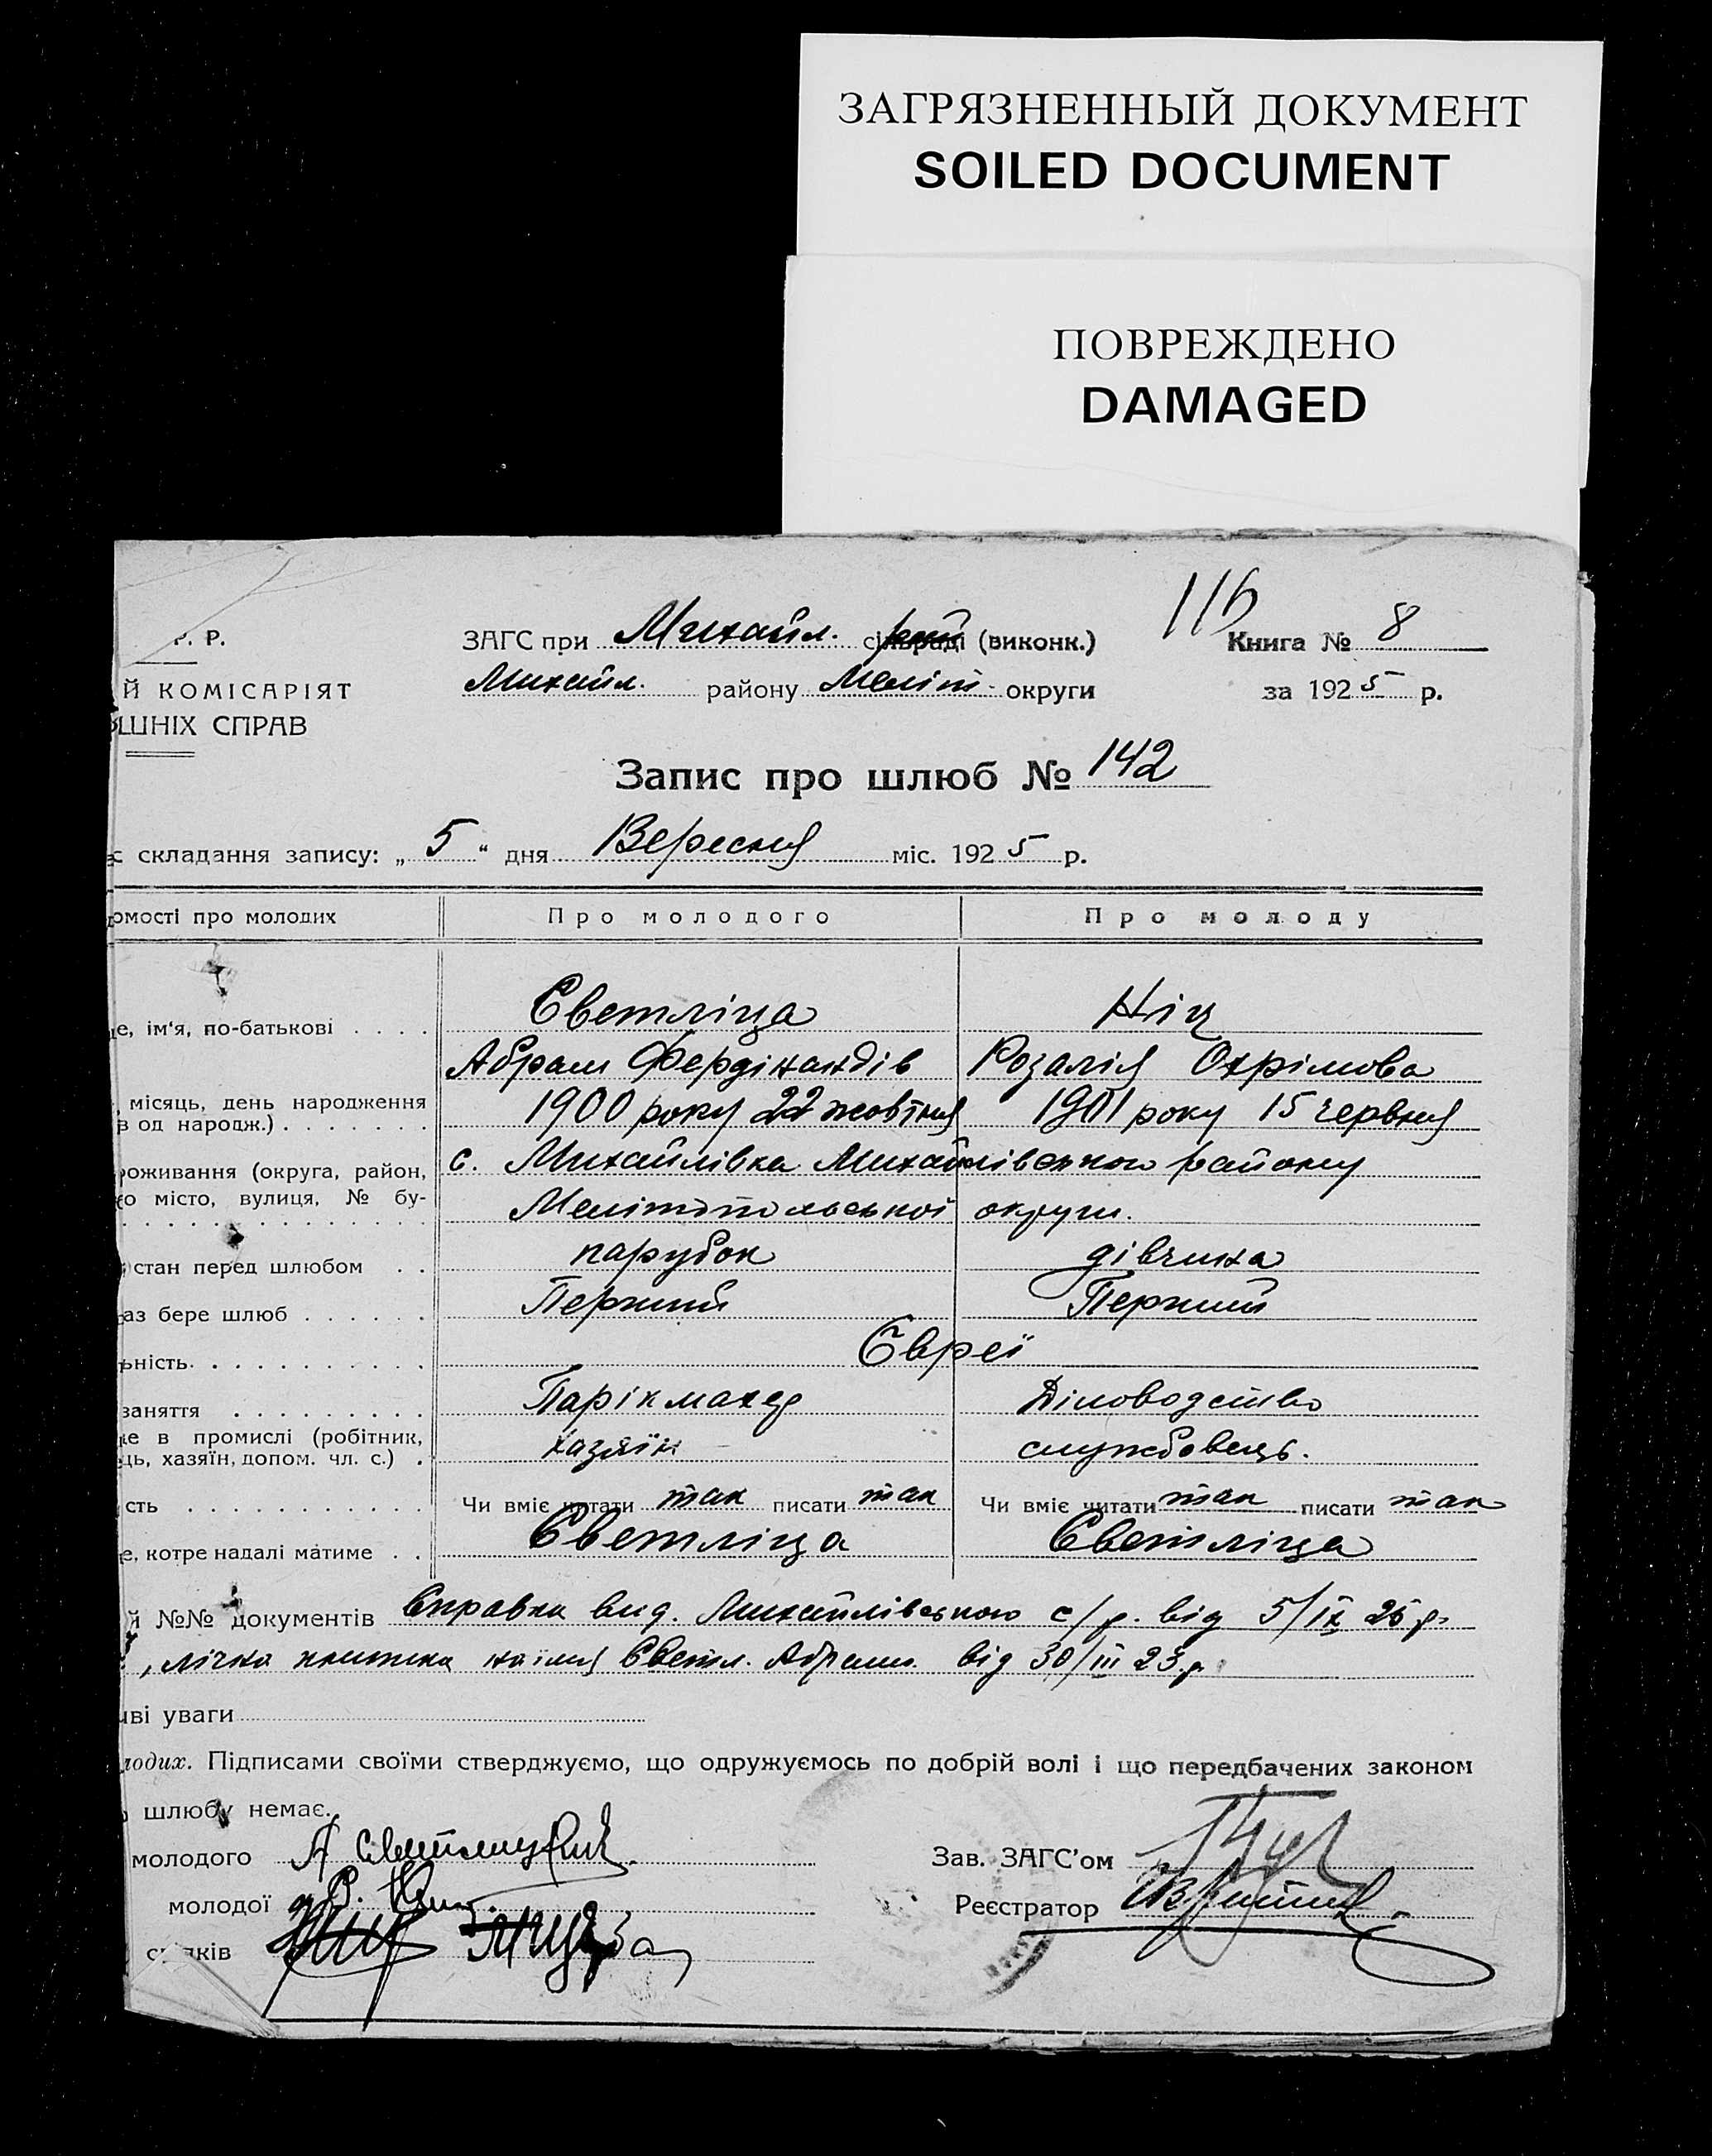 ЗАГРЯЗНЕННЫЙ ДОКУМЕНТ
SOILED DOCUMENT
ПОВРЕЖДЕНО
DAMAGED
116
Р. Р.
ЗАГС при Михайл. сільраді (виконк.)
Книга № 8
Михайл. району Меліт. округи
за 1925 р.
Й КОМІСАРІЯТ
ШНІХ СПРАВ
Запис про шлюб № 142
с складання запису: „ 5 “ дня Вересня міс. 1925 р.
омості про молодих Про молодого Про молоду
е, ім‘я, по-батькові . . . . Светліца Ніц
Абрам Фердінандів Розалія Охрімова
, місяць, день народження 1900 року 22 жовтня 1901 року 15 червня
в од народж.) . . . . . . .
роживання (округа, район, с. Михайлівка Михайлівського району
о місто, вулиця, № бу-
Мелітопольської округи.
стан перед шлюбом . . парубок дівчина
аз бере шлюб . . . . . . Перший Перший
ьність . . . . . . . . . . Євреї
заняття . . . . . . . . . Парікмахер Діловодство
е в промислі (робітник, хазяїн службовець.
ць, хазяїн, допом. чл. с.) .
сть . . . . . . . . . . . Чи вміє читати так писати так Чи вміє читати так писати так
е, котре надалі матиме . . Светліца Светліца
й №№ документів Справка вид. Михайлівською с/р. від 5/IX 25 р.
, лічна книжка на імя Светл. Абрам. від 30/III 23 р.
иві уваги
лодих. Підписами своїми стверджуємо, що одружуємось по добрій волі і що передбачених законом
шлюбу немає.
молодого
Зав. ЗАГС’ом
молодої
Реєстратор
ків